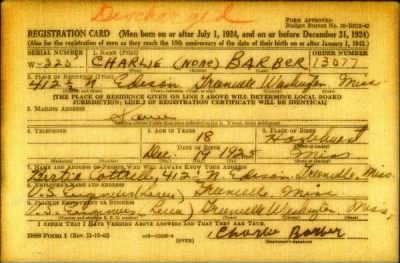 Discharged
FORM APPROVED
REGISTRATION CARD—(Men born on or after July 1, 1924, and on or before December 31, 1924)
(Also for the registration of men as they reach the 18th anniversary of the date of their birth on or after January 1, 1943.)
SERIAL NUMBER ORDER NUMBER
W-325 CHARLIE (NONE) BARBER 13077
412 N Edison Greenville Washington Miss
(THE PLACE OF RESIDENCE GIVEN ON LINE 2 ABOVE WILL DETERMINE LOCAL BOARD
JURISDICTION; LINE 2 OF REGISTRATION CERTIFICATE WILL BE IDENTICAL)
3. MAILING ADDRESS
Same
4. TELEPHONE 5. AGE IN YEARS 6. PLACE OF BIRTH
18 Hazlehurst
DATE OF BIRTH
Dec 1925 Miss
7. NAME AND ADDRESS OF PERSON WHO WILL ALWAYS KNOW YOUR ADDRESS
Cottrell, 412 N Edison Greenville, Miss
8. EMPLOYER'S NAME AND ADDRESS
U.S. Engineers Greenville, Miss
9. PLACE OF EMPLOYMENT OR BUSINESS
U.S. Engineers Greenville Washington Miss.
I AFFIRM THAT I HAVE VERIFIED ABOVE ANSWERS AND THAT THEY ARE TRUE.
DSS Form 1 (OVER) Charlie Barber